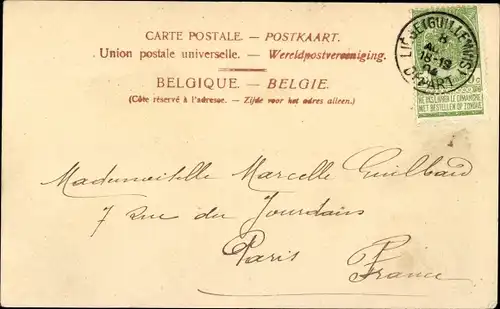 CARTE POSTALE. — POSTKAART.
Union postale universelle. — Wereldpostvereeniging.
BELGIQUE. — BELGIE.
(Côté réservé à l'adresse. — Zijde voor het adres alleen.)
LIEGE (GUILLEMINS)
8
18-19
04
DEPART
NE PAS LIVRER LE DIMANCHE
NIET BESTELLEN OP ZONDAG
Mademoiselle Marcelle Guilbaud
7 Rue du Jourdain
Paris
France